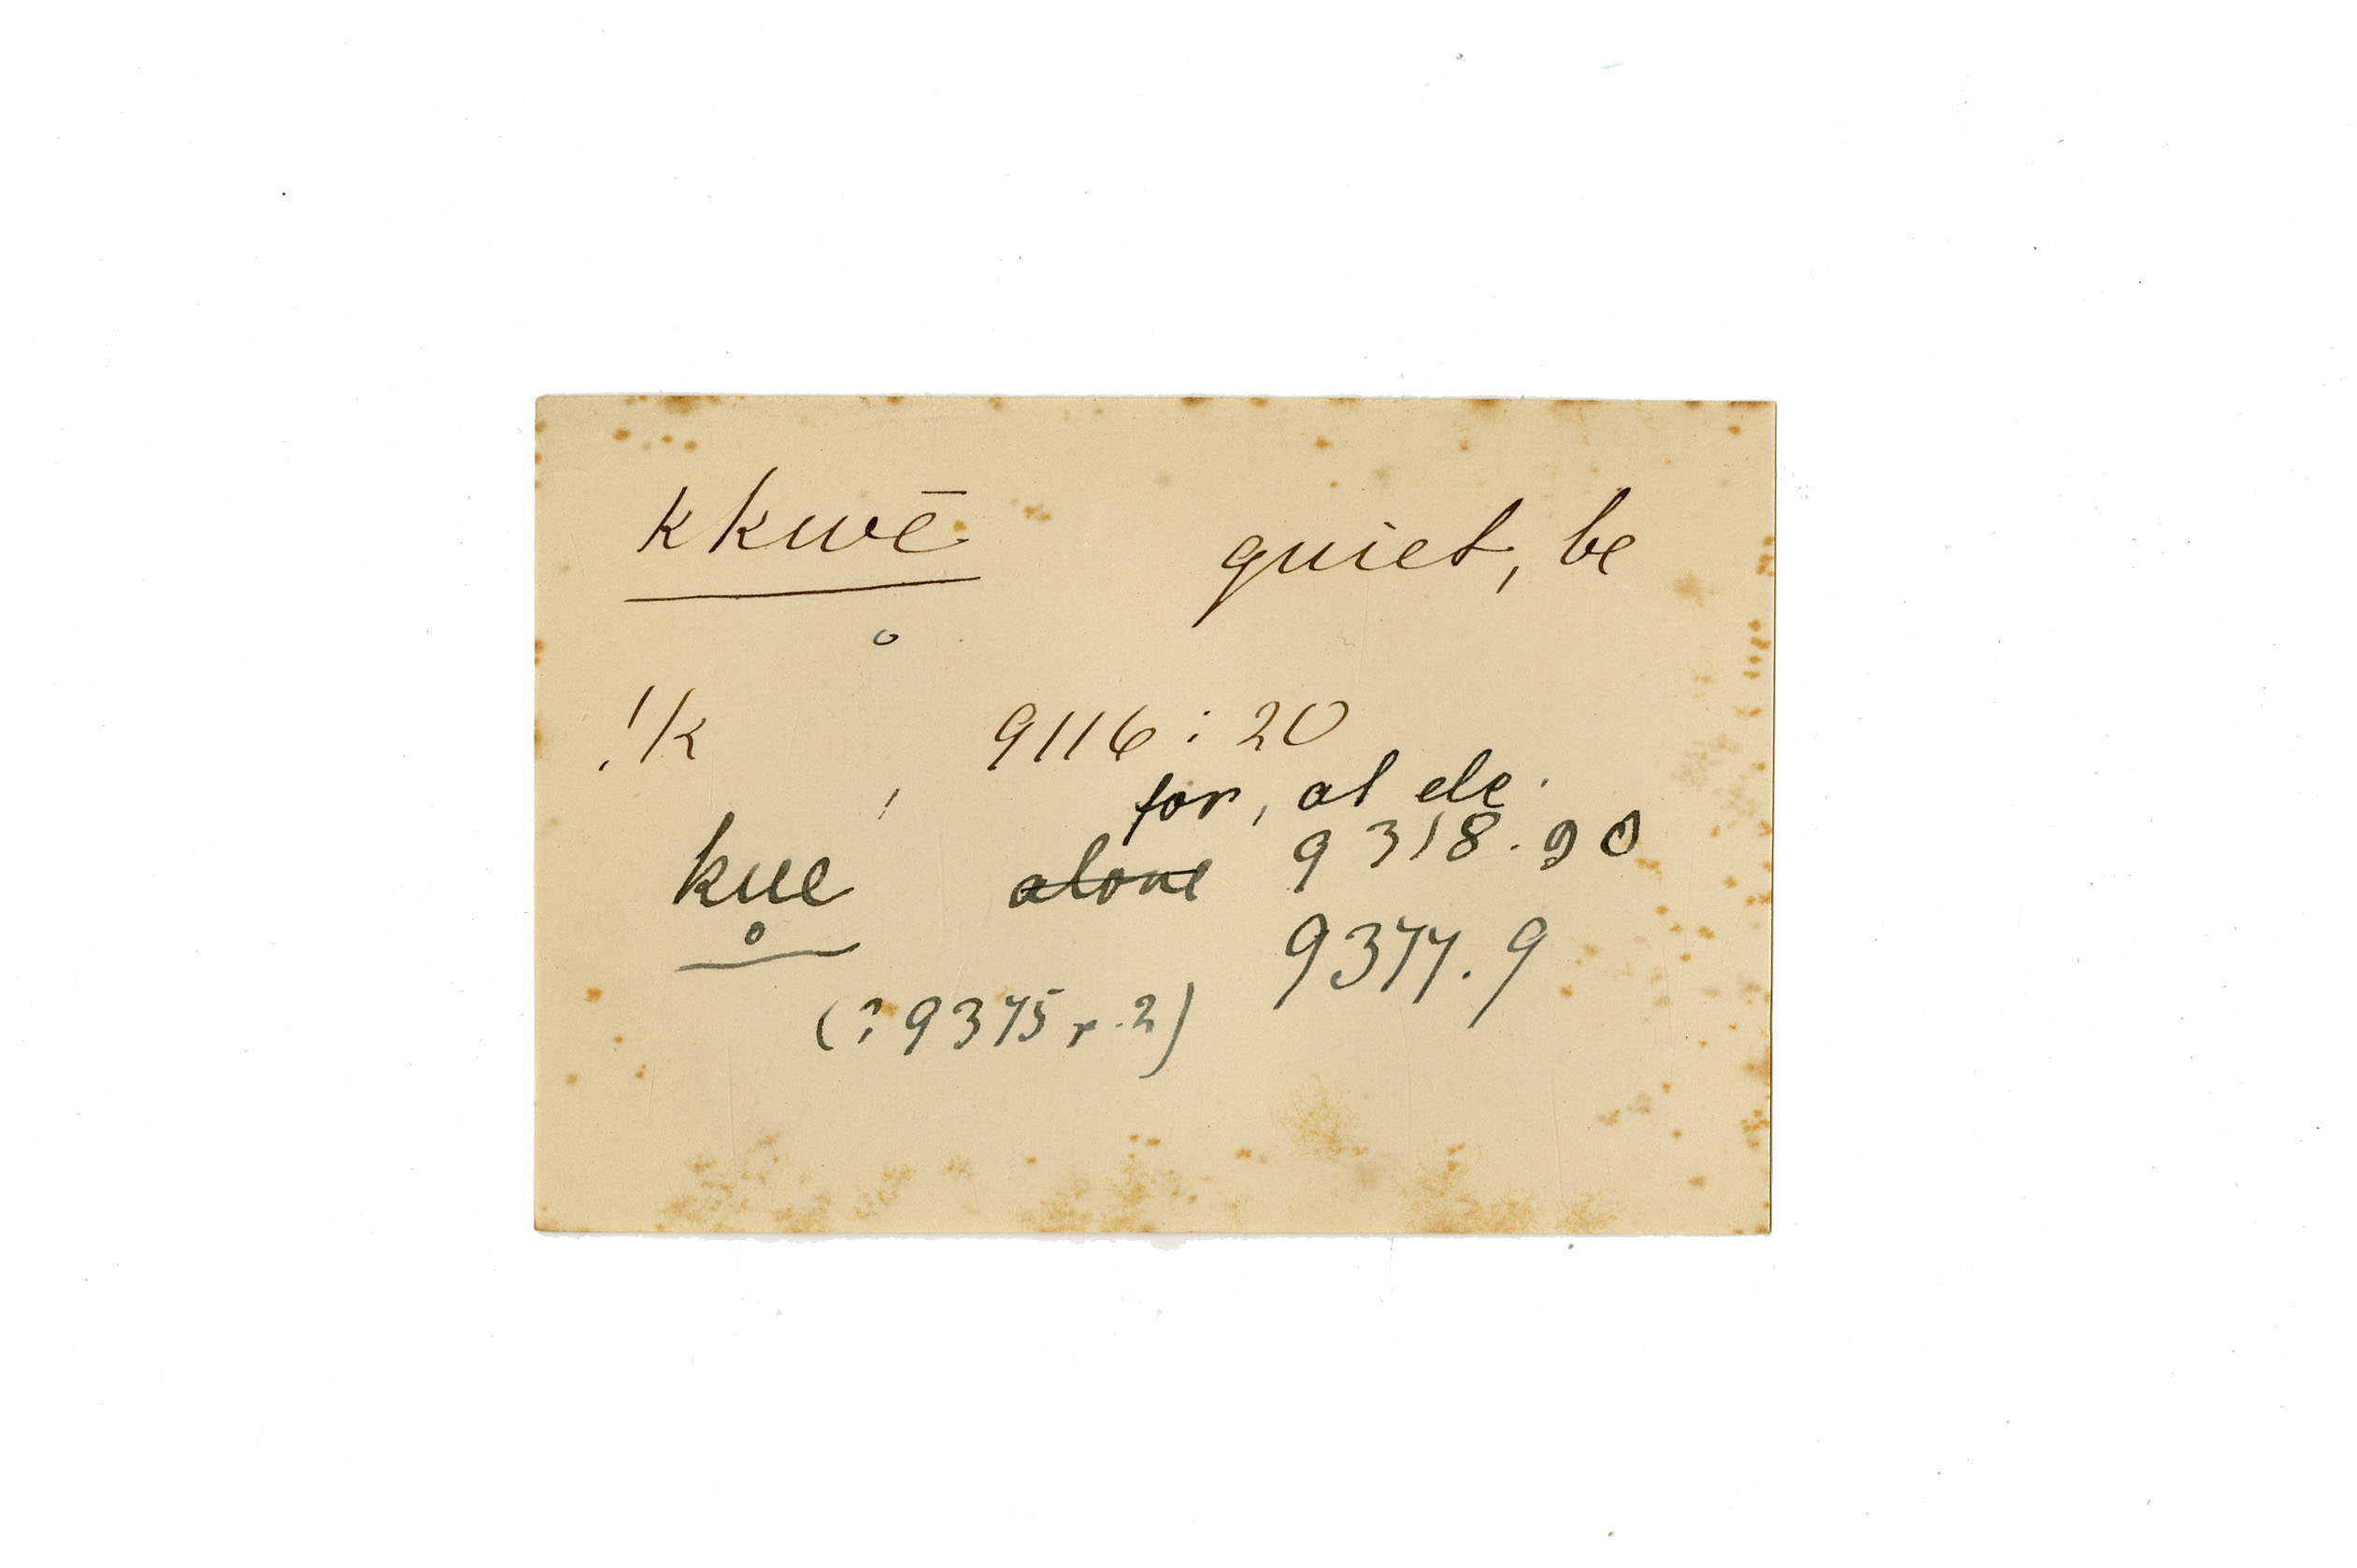 kkwē quiet, be
!k 9116:20
for, at etc.
kue̥ alone 9318.90
9377.9
(? 9375 r. 2)